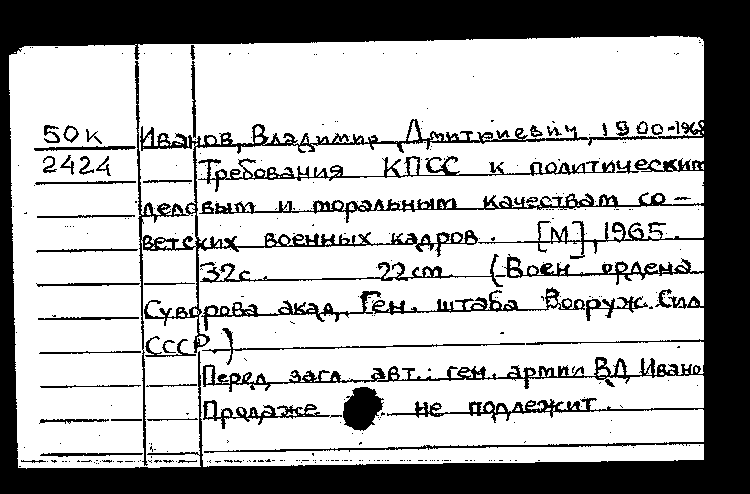 50к Иванов, Владимир Дмитриевич, 1900-1968
2424 Требования КПСС к политическим
деловым и моральным качествам со-
ветских военных кадров. [М], 1965.
32с. 22cm. (Воен. ордена
Суворова акад. Ген. штаба Вооруж. Сил
СССР.)
Перед загл. авт.: ген. армии В.Д. Иванов
Продаже не подлежит.